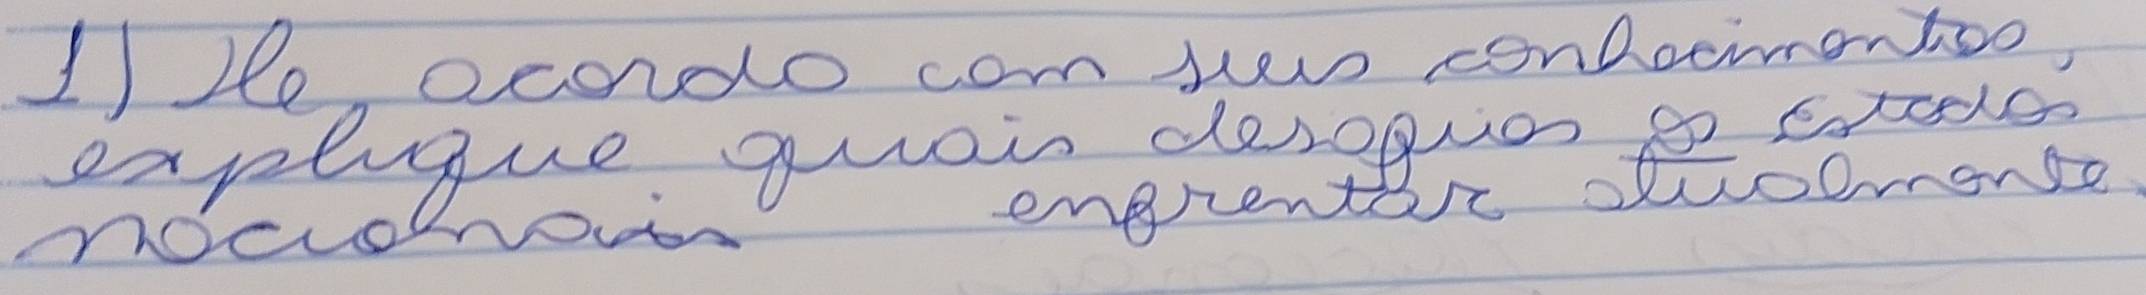 1) De acordo com seus conhecimentos,
explique quais desafios os Estados
nacionais enfrentar atualmente.